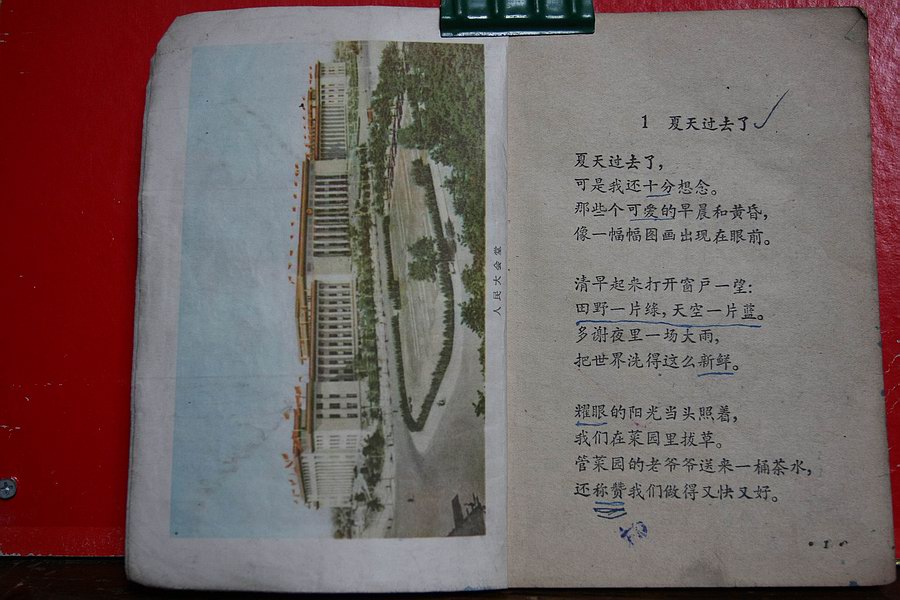 人民大会堂
1 夏天过去了
夏天过去了，
可是我还十分想念。
那些个可爱的早晨和黄昏，
像一幅幅图画出现在眼前。
清早起来打开窗户一望：
田野一片绿，天空一片蓝。
多谢夜里一场大雨，
把世界洗得这么新鲜。
耀眼的阳光当头照着，
我们在菜园里拔草。
管菜园的老爷爷送来一桶茶水，
还称赞我们做得又快又好。
· 1 ·